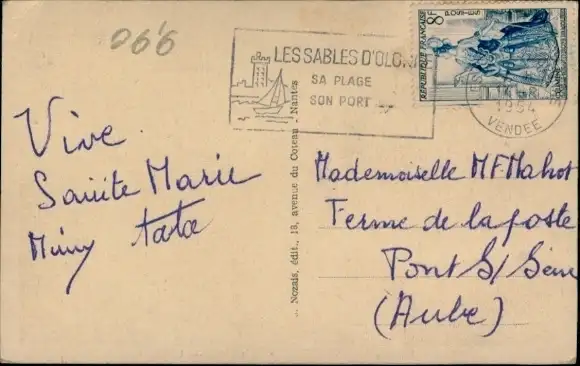 066
LES SABLES D'OLON
SA PLAGE
SON PORT
REPUBLIQUE FRANÇAISE
8F
POSTES
1954
VENDEE
Vive
Sainte Marie
Mimy tata
Nozais, édit., 18, avenue du Coteau - Nantes
Mademoiselle M F Mahot
Ferme de la poste
Pont S/ Seine
(Aube)